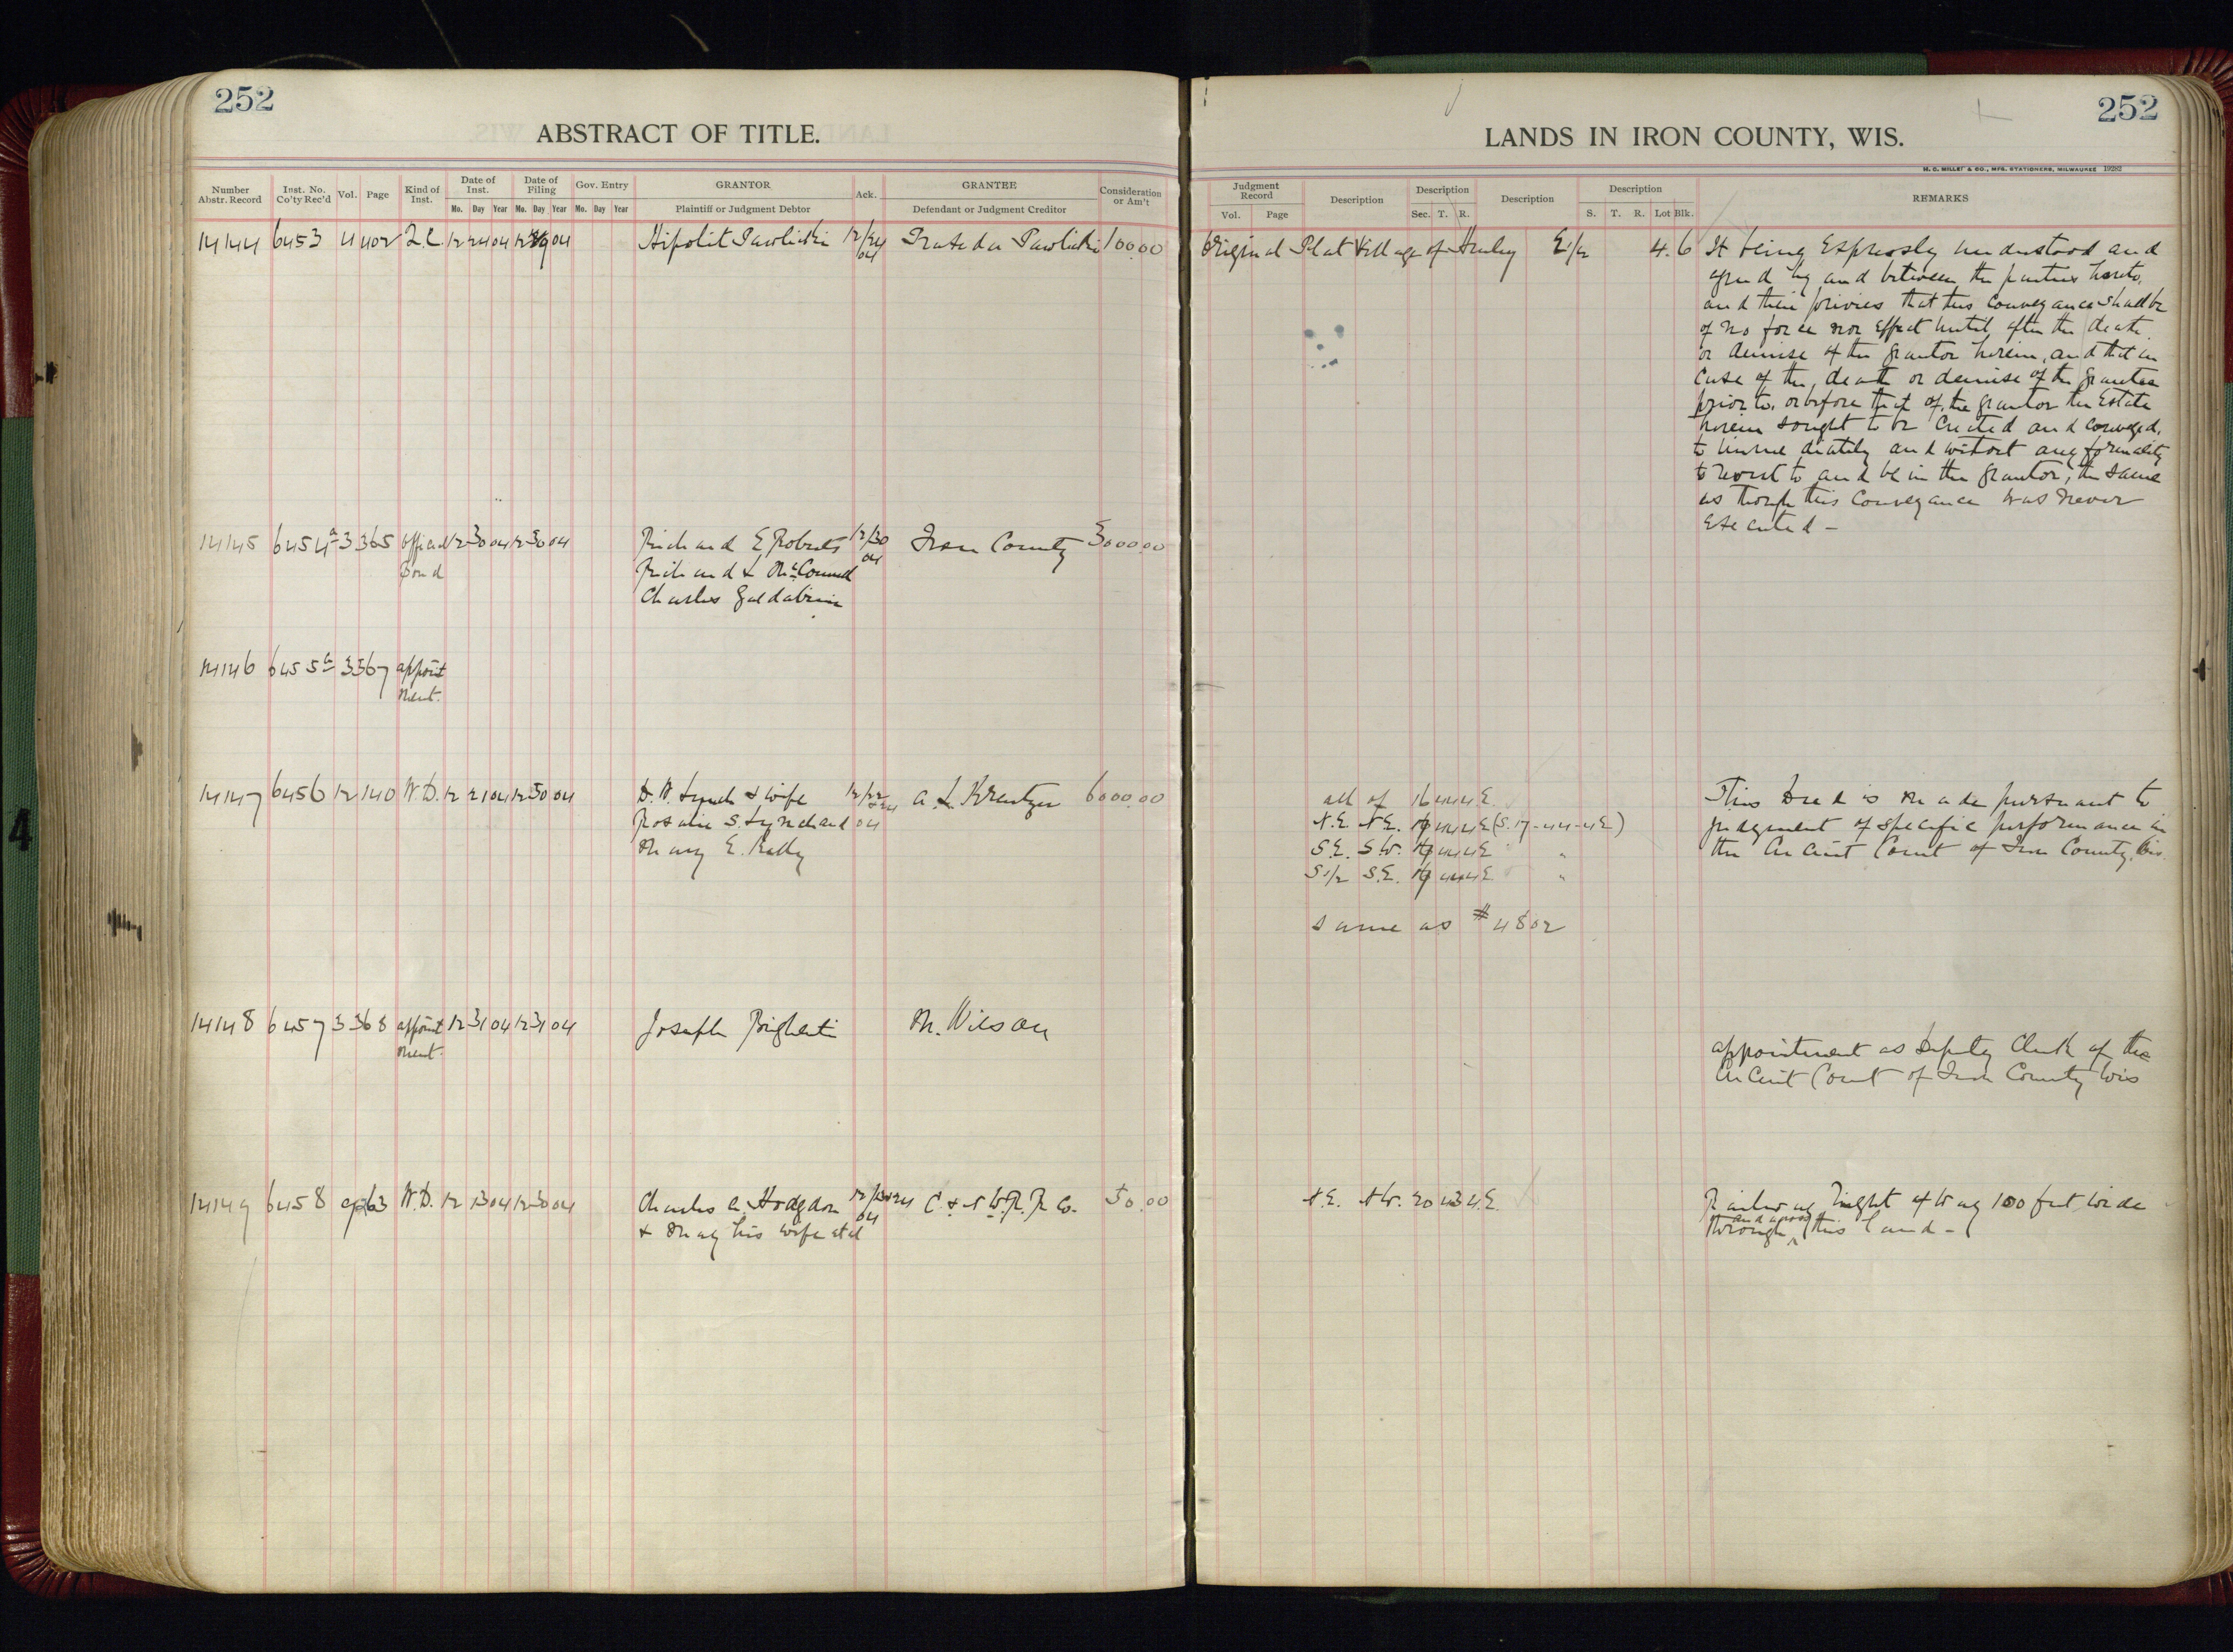 252
ABSTRACT OF TITLE.
Number Abstr. Record
Inst. No. Co'ty Rec'd
Vol.
Page
Kind of Inst.
Date of Inst.
Date of Filing
Gov. Entry
GRANTOR
Ack.
GRANTEE
Consideration or Am't
Mo. Day Year Mo. Day Year Mo. Day Year
Plaintiff or Judgment Debtor
Defendant or Judgment Creditor
14144 6453 4 402 Q.C. 12 24 04 12 04 Hipolit Pawlicki 12/24 04 Pawlicki 100.00
14145 6454 3 365 Official Bond 12 30 04 12 30 04 Richard E Roberts 12/30 04 Iron County 3000.00
Charles
14146 6455 3 367 appoint
ment.
14147 6456 12 140 W.D. 12 21 04 12 30 04 D.W. Lynch & wife 12/22 04 A. L. Kreutzer 6000.00
Rosalie S. Lynch and
Mary E. Kelly
14148 6457 3 368 appoint 12 31 04 12 31 04 Joseph M. Wilson
ment.
14149 6458 63 W.D. 12 13 04 12 30 04 Charles A. Hodgdon C. & N.W. R. R. Co. 50.00
& May his wife et al
252
LANDS IN IRON COUNTY, WIS.
H. C. MILLER & CO., MFG. STATIONERS, MILWAUKEE 19282
Judgment Record
Description
Description
Description
Description
REMARKS
Vol. Page
Sec. T. R.
S. T. R. Lot Blk.
Original Plat Village of Hurley E1/2 4 6 It being Expressly understood and
agreed by and between the parties hereto,
and their privies that this Conveyance shall be
of no force nor Effect until after the death
or demise of the Grantor herein, and that in
Case of the death or demise of the Grantee
prior to, or before that of the grantor the Estate
herein sought to be Created and conveyed,
to immediately and without any formality
to revert to and be in the Grantor, the same
as though this Conveyance was never
Executed -
all of 16 44 4E. This Deed is made pursuant to
N.E. N.E. 44 4E (S. 17-44-4E) judgment of specific performance in
S.E. S.W. 44 4E " the Circuit Court of Iron County, Wis.
S1/2 S.E. 44 4E "
same as # 4802
appointment as Deputy Clerk of the
Circuit Court of Iron County Wis
N.E. N.W. 20 43 4E. Railway Right of Way 100 feet wide
through and across this land -